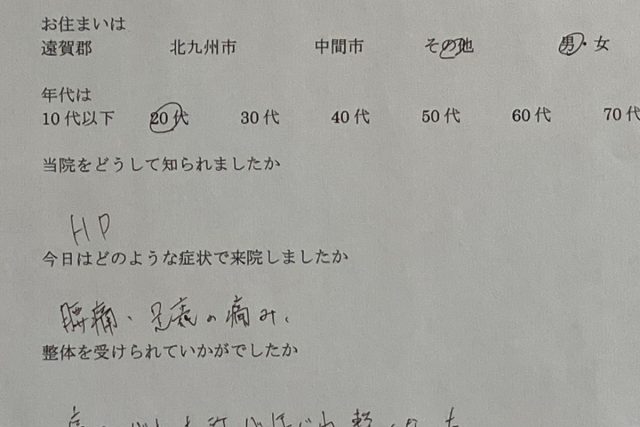 お住まいは
遠賀郡 北九州市 中間市 その他 男・女
年代は
10代以下 20代 30代 40代 50代 60代 70代
当院をどうして知られましたか
HP
今日はどのような症状で来院しましたか
腰痛、足裏の痛み、
整体を受けられていかがでしたか